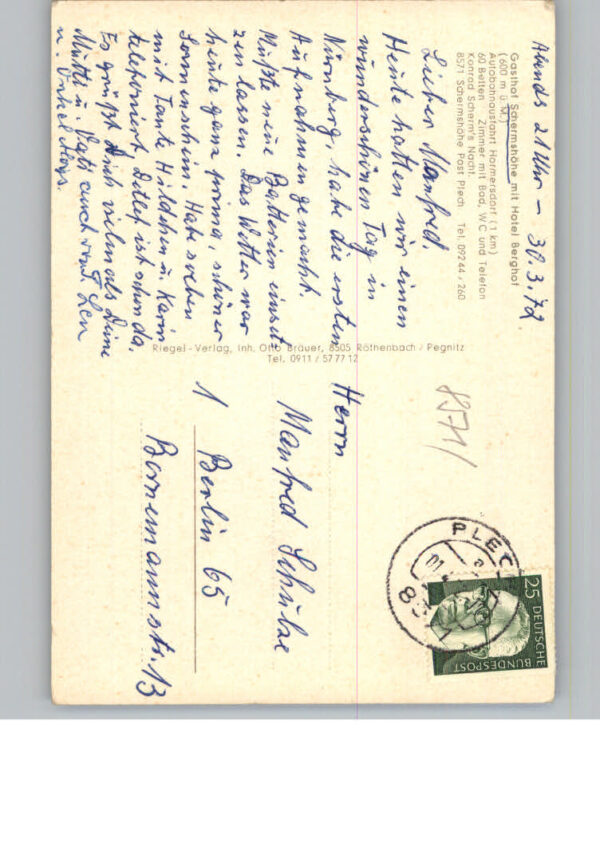 Abends 21 Uhr – 30.3.72.
Gasthof Schermshöhe mit Hotel Berghof
(600 m ü. M.)
Autobahnausfahrt Hormersdorf (1 km)
60 Betten Zimmer mit Bad, WC und Telefon
Konrad Scherm's Nachf.
8571 Schermshöhe Post Plech Tel. 09244 / 260
Lieber Manfred.
Heute hatten wir einen
wunderschönen Tag in
Nürnberg, habe die ersten
Aufnahmen gemacht.
Mußte neue Batterien einset-
zen lassen. Das Wetter war
heute ganz warm, schöner
Sonnenschein. Habe soeben
mit Tante Hildchen u. Karin
telefoniert. Detlef ist schon da.
Es grüßt Dich vielmals Deine
Mutti u. Vati auch von T. Len
u. Onkel
Riegel-Verlag, Inh. Otto Bräuer, 8505 Röthenbach / Pegnitz
Tel. 0911 / 57 77 12
8571/
Herrn
Manfred Schulze
1 Berlin 65
Bornemannstr. 13
PLECH
25 DEUTSCHE
BUNDESPOST